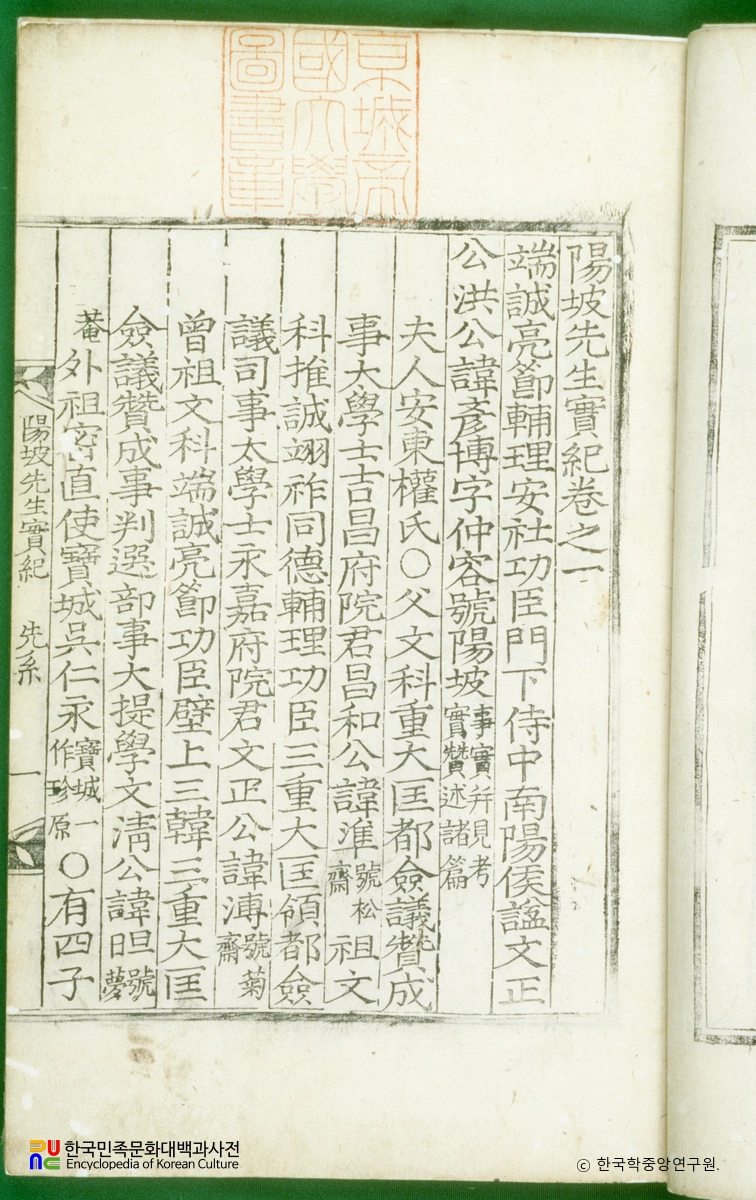 京城帝
國大學
圖書章
陽坡先生實紀卷之一
端誠亮節輔理安社功臣門下侍中南陽侯諡文正
公洪公諱彥博字仲容號陽坡事實并見考實贊述諸篇
夫人安東權氏○父文科重大匡都僉議贊成
事大學士吉昌府院君昌和公諱準號松齋祖文
科推誠翊祚同德輔理功臣三重大匡領都僉
議司事太學士永嘉府院君文正公諱溥號菊齋
曾祖文科端誠亮節功臣壁上三韓三重大匡
僉議贊成事判選部事大提學文淸公諱㫜號夢
菴外祖密直使寶城吳仁永寶城一作珍原○有四子
陽坡先生實紀 先系 一
한국민족문화대백과사전
Encyclopedia of Korean Culture
ⓒ 한국학중앙연구원.